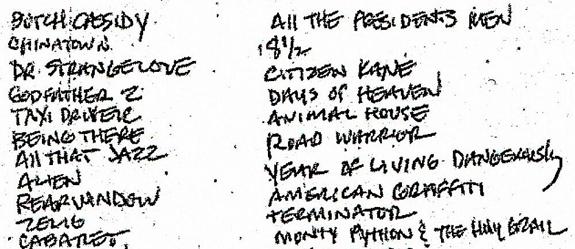 BUTCH CASSIDY
CHINATOWN
DR. STRANGELOVE
GODFATHER 2
TAXI DRIVER
BEING THERE
All THAT JAZZ
ALIEN
REAR WINDOW
ZELIG
CABARET
All THE PRESIDENTS MEN
8 1/2
CITIZEN KANE
DAYS OF HEAVEN
ANIMAL HOUSE
ROAD WARRIOR
YEAR OF LIVING DANGEROUSLY
AMERICAN GRAFFITI
TERMINATOR
MONTY PYTHON & THE HOLY GRAIL